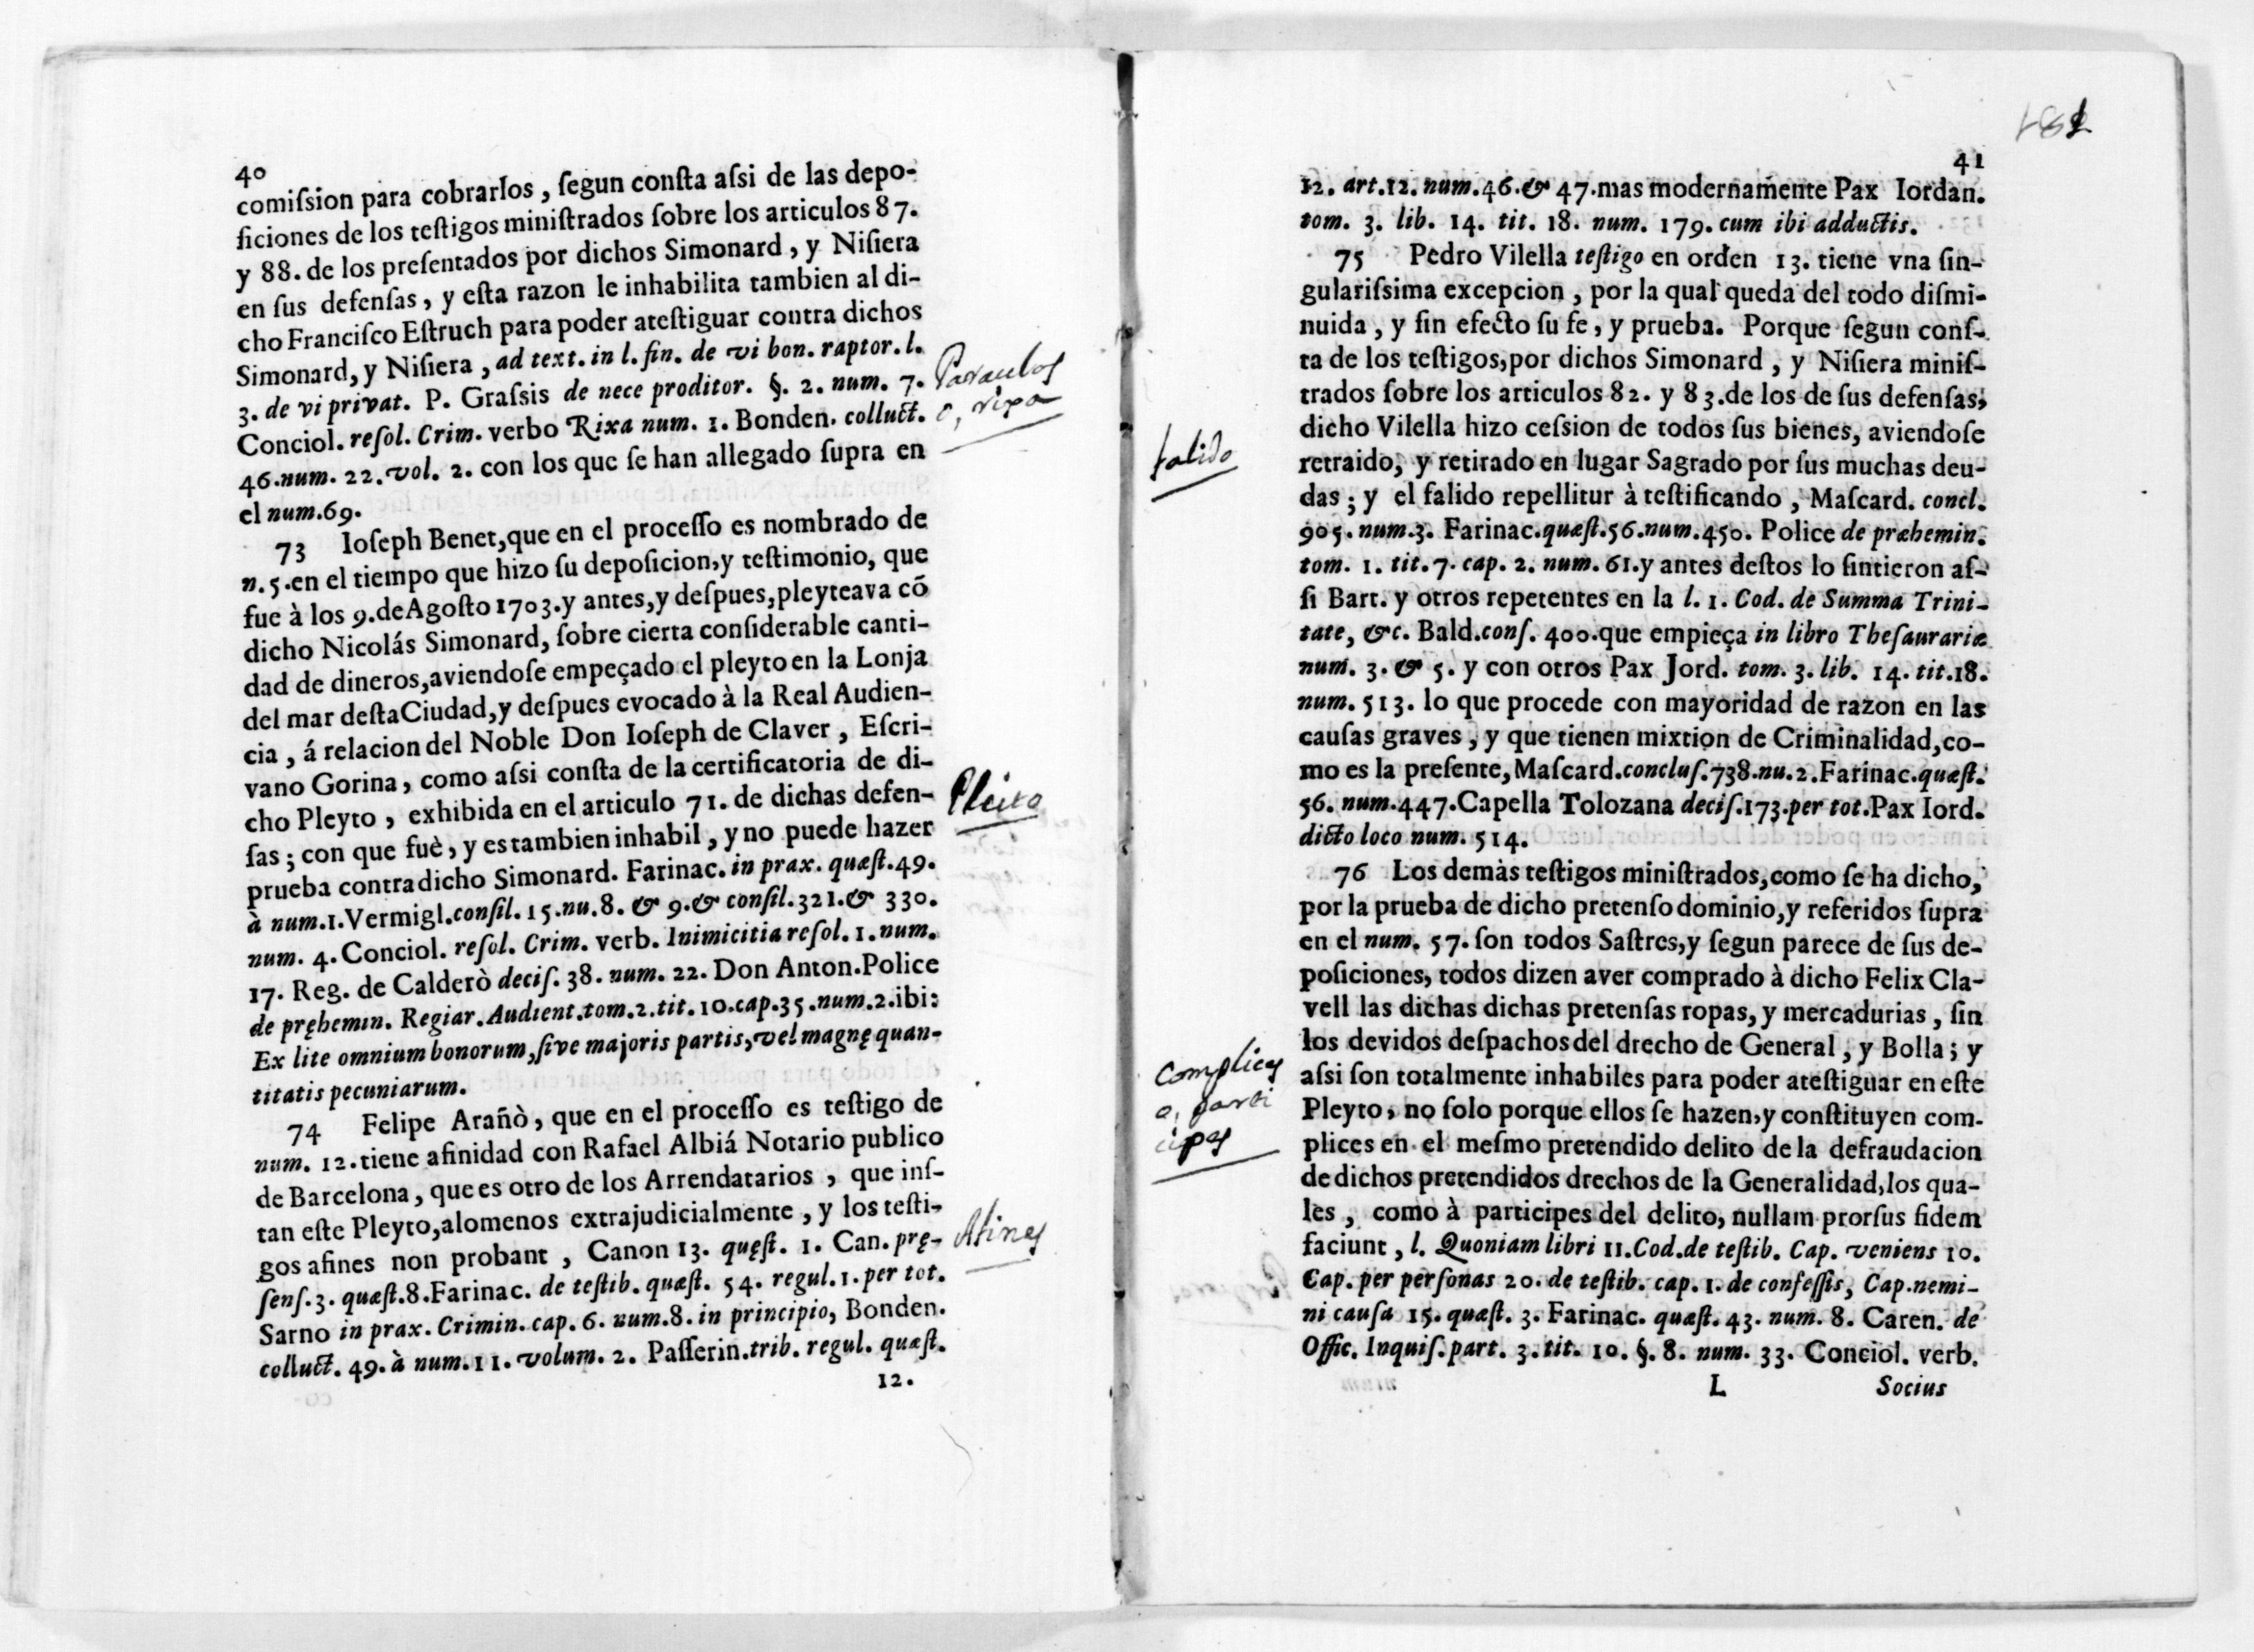 40
comiſsion para cobrarlos, ſegun conſta aſsi de las depo-
ſiciones de los teſtigos miniſtrados ſobre los articulos 87.
y 88. de los preſentados por dichos Simonard, y Niſiera
en ſus defenſas, y eſta razon le inhabilita tambien al di-
cho Franciſco Eſtruch para poder ateſtiguar contra dichos
Simonard, y Niſiera, ad text. in l. fin. de vi bon. raptor. l.
3. de vi privat. P. Graſsis de nece proditor. §. 2. num. 7.
Conciol. reſol. Crim. verbo Rixa num. 1. Bonden. colluct.
46. num. 22. vol. 2. con los que ſe han allegado ſupra en
el num. 69.
73 Ioſeph Benet, que en el proceſſo es nombrado de
n. 5. en el tiempo que hizo ſu depoſicion, y teſtimonio, que
fue à los 9. de Agoſto 1703. y antes, y deſpues, pleyteava cõ
dicho Nicolás Simonard, ſobre cierta conſiderable canti-
dad de dineros, aviendoſe empeçado el pleyto en la Lonja
del mar deſta Ciudad, y deſpues evocado à la Real Audien-
cia, á relacion del Noble Don Ioſeph de Claver, Eſcri-
vano Gorina, como aſsi conſta de la certificatoria de di-
cho Pleyto, exhibida en el articulo 71. de dichas defen-
ſas; con que fuè, y es tambien inhabil, y no puede hazer
prueba contra dicho Simonard. Farinac. in prax. quæſt. 49.
à num. 1. Vermigl. conſil. 15. nu. 8. & 9. & conſil. 321. & 330.
num. 4. Conciol. reſol. Crim. verb. Inimicitia reſol. 1. num.
17. Reg. de Calderò deciſ. 38. num. 22. Don Anton. Police
de pręhemin. Regiar. Audient. tom. 2. tit. 10. cap. 35. num. 2. ibi:
Ex lite omnium bonorum, ſive majoris partis, vel magnę quan-
titatis pecuniarum.
74 Felipe Arañò, que en el proceſſo es teſtigo de
num. 12. tiene afinidad con Rafael Albiá Notario publico
de Barcelona, que es otro de los Arrendatarios, que inſ-
tan eſte Pleyto, alomenos extrajudicialmente, y los teſti-
gos afines non probant, Canon 13. quęſt. 1. Can. prę-
ſenſ. 3. quæſt. 8. Farinac. de teſtib. quæſt. 54. regul. 1. per tot.
Sarno in prax. Crimin. cap. 6. num. 8. in principio, Bonden.
colluct. 49. à num. 11. volum. 2. Paſſerin. trib. regul. quæſt.
12.
Paraulas
o, rixa
Pleito
Afines
181
41
12. art. 12. num. 46. & 47. mas modernamente Pax Iordan.
tom. 3. lib. 14. tit. 18. num. 179. cum ibi adductis.
75 Pedro Vilella teſtigo en orden 13. tiene vna ſin-
gulariſsima excepcion, por la qual queda del todo diſmi-
nuida, y ſin efecto ſu fe, y prueba. Porque ſegun conſ-
ta de los teſtigos, por dichos Simonard, y Niſiera miniſ-
trados ſobre los articulos 82. y 83. de los de ſus defenſas,
dicho Vilella hizo ceſsion de todos ſus bienes, aviendoſe
retraido, y retirado en lugar Sagrado por ſus muchas deu-
das; y el falido repellitur à teſtificando, Maſcard. concl.
905. num. 3. Farinac. quæſt. 56. num. 450. Police de præhemin.
tom. 1. tit. 7. cap. 2. num. 61. y antes deſtos lo ſintieron aſ-
ſi Bart. y otros repetentes en la l. 1. Cod. de Summa Trini-
tate, &c. Bald. conſ. 400. que empieça in libro Theſaurariæ
num. 3. & 5. y con otros Pax Jord. tom. 3. lib. 14. tit. 18.
num. 513. lo que procede con mayoridad de razon en las
cauſas graves, y que tienen mixtion de Criminalidad, co-
mo es la preſente, Maſcard. concluſ. 738. nu. 2. Farinac. quæſt.
56. num. 447. Capella Tolozana deciſ. 173. per tot. Pax Iord.
dicto loco num. 514.
76 Los demàs teſtigos miniſtrados, como ſe ha dicho,
por la prueba de dicho pretenſo dominio, y referidos ſupra
en el num. 57. ſon todos Saſtres, y ſegun parece de ſus de-
poſiciones, todos dizen aver comprado à dicho Felix Cla-
vell las dichas dichas pretenſas ropas, y mercadurias, ſin
los devidos deſpachos del drecho de General, y Bolla; y
aſsi ſon totalmente inhabiles para poder ateſtiguar en eſte
Pleyto, no ſolo porque ellos ſe hazen, y conſtituyen com-
plices en el meſmo pretendido delito de la defraudacion
de dichos pretendidos drechos de la Generalidad, los qua-
les, como à participes del delito, nullam prorſus fidem
faciunt, l. Quoniam libri 11. Cod. de teſtib. Cap. veniens 10.
Cap. per perſonas 20. de teſtib. cap. 1. de confeſſis, Cap. nemi-
ni cauſa 15. quæſt. 3. Farinac. quæſt. 43. num. 8. Caren. de
Offic. Inquiſ. part. 3. tit. 10. §. 8. num. 33. Conciol. verb.
L Socius
falido
complices
o, parti
cipes